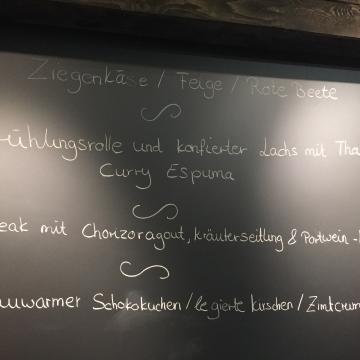 Ziegenkäse / Feige / Rote Beete
ühlungsrolle und konfierter Lachs mit Tha
Curry Espuma
eak mit Chorizoragout, kräuterseitlung & Portwein -
uwarmer Schokokuchen / legierte kirschen / Zimtcrum